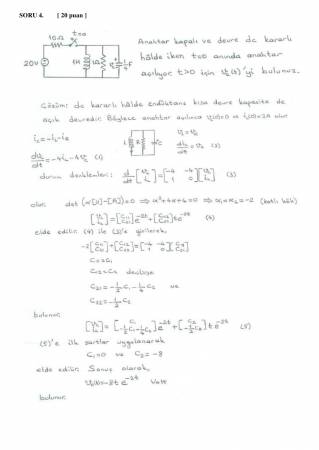 SORU 4. [ 20 puan ]
10Ω t=0
20V 1H 1Ω 1/4 F
Anahtar kapalı ve devre dc kararlı
hâlde iken t=0 anında anahtar
açılıyor. t>0 için v_c(t)'yi bulunuz.
Çözüm: dc kararlı hâlde endüktans kısa devre kapasite de
açık devredir. Böylece anahtar açılınca v_c(0)=0 ve i_L(0)=2A olur
i_c=-i_L-i_R
v_L=v_c
dv_c/dt=-4i_L-4v_c (1)
di_L/dt=v_c (2)
durum denklemleri: d/dt [v_c i_L]=[-4 -4 1 0][v_c i_L] (3)
olur. det(α[1]-[A])=0 ⇒ α²+4α+4=0 ⇒ α₁=α₂=-2 (katlı kök)
[v_c i_L]=[C₁₁ C₂₁]e^-2t+[C₁₂ C₂₂]te^-2t (4)
elde edilir. (4) ile (3)'e girilerek,
-2[C₁₁ C₂₁]+[C₁₂ C₂₂]=[-4 -4 1 0][C₁₁ C₂₁]
C₁₁=C₁
C₁₂=C₂ denilirse
C₂₁=-1/2 C₁-1/4 C₂ ve
C₂₂=-1/2 C₂
bulunur.
[v_c i_L]=[C₁ -1/2 C₁-1/4 C₂]e^-2t+[C₂ -1/2 C₂]t e^-2t (5)
(5)'e ilk şartlar uygulanarak
C₁=0 ve C₂=-8
elde edilir. Sonuç olarak,
v_c(t)=-8t e^-2t Volt
bulunur.